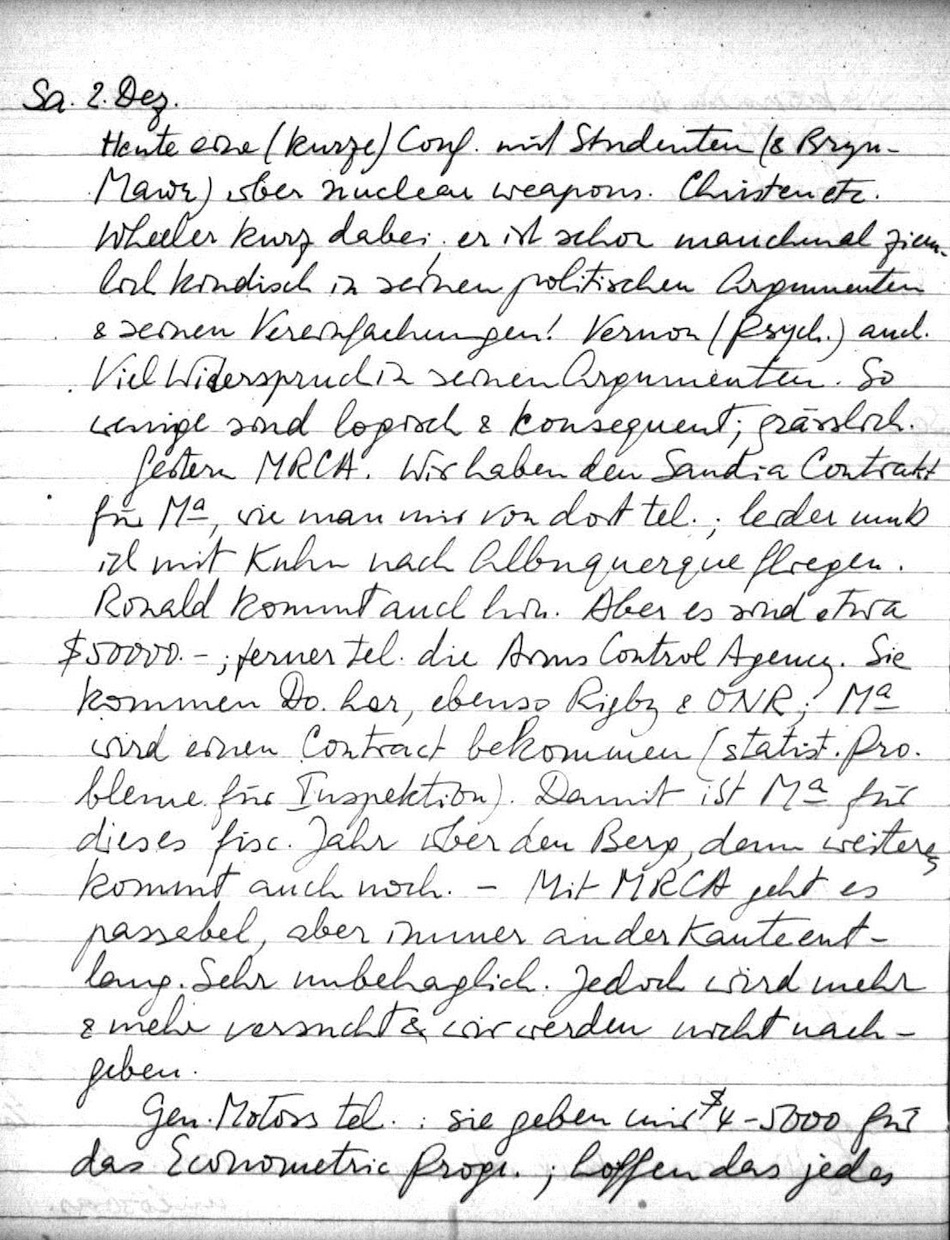 Sa. 2. Dez.
Heute eine (kurze) Conf. mit Studenten (& Bryn-
Mawr) über nuclear weapons. Christen etc.
Wheeler kurz dabei; er ist schon manchmal ziem-
lich kindisch in seinen politischen Argumenten
& seinen Vereinfachungen! Vernon (Psych.) auch.
Viel Widerspruch in seinen Argumenten. So
wenige sind logisch & konsequent; grässlich.
Gestern MRCA. Wir haben den Sandia Contrakt
für Ma, wie man mir von dort tel.; leider muß
ich mit Kuhn nach Albuquerque fliegen.
Ronald kommt auch hin. Aber es sind etwa
$50000.-; ferner tel. die Arms Control Agency. Sie
kommen Do. her, ebenso Rigby & ONR; Ma
wird einen Contract bekommen (statist. Pro-
bleme für Inspektion). Damit ist Ma für
dieses fisc. Jahr über den Berg, denn weiteres
kommt auch noch. – Mit MRCA geht es
passabel, aber immer an der Kante ent-
lang. Sehr unbehaglich. Jedoch wird mehr
& mehr versucht & wir werden nicht nach-
geben.
Gen. Motors tel.: sie geben mir $4-5000 für
das Econometric Progr.; hoffen das jedes